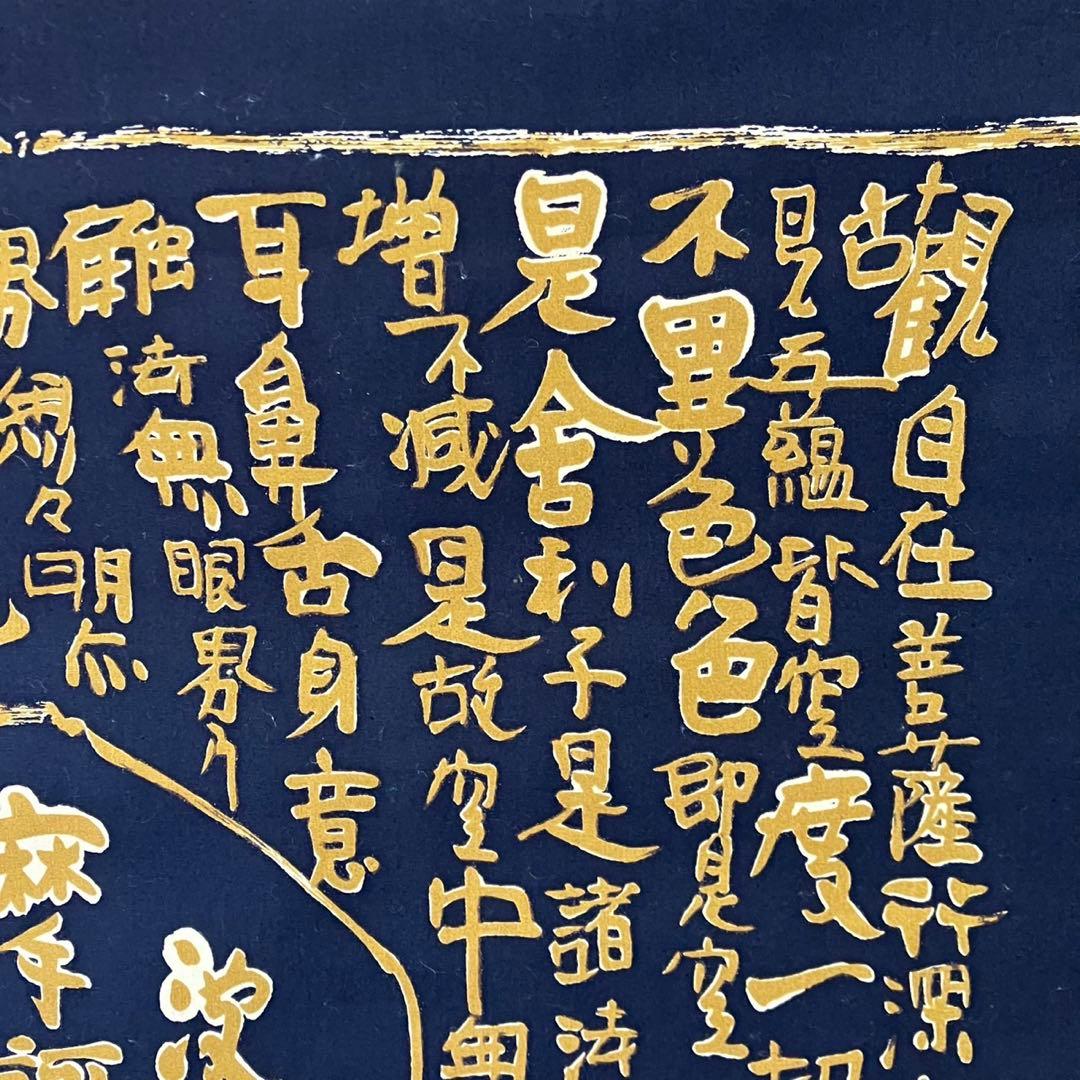 觀自在菩薩行深
見五蘊皆空度一切
不異色色即是空
是舍利子是諸法
增不減是故空中無
耳鼻舌身意
觸法無眼界乃
明亦
摩訶
波